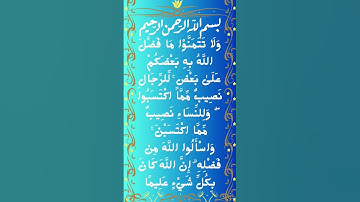 بسم الله الرحمن الرحيم
وَلَا تَتَمَنَّوْا مَا فَضَّلَ
اللَّهُ بِهِ بَعْضَكُمْ
عَلَىٰ بَعْضٍ ۚ لِّلرِّجَالِ
نَصِيبٌ مِّمَّا اكْتَسَبُوا
ۖ وَلِلنِّسَاءِ نَصِيبٌ
مِّمَّا اكْتَسَبْنَ ۚ
وَاسْأَلُوا اللَّهَ مِن
فَضْلِهِ ۗ إِنَّ اللَّهَ كَانَ
بِكُلِّ شَيْءٍ عَلِيمًا